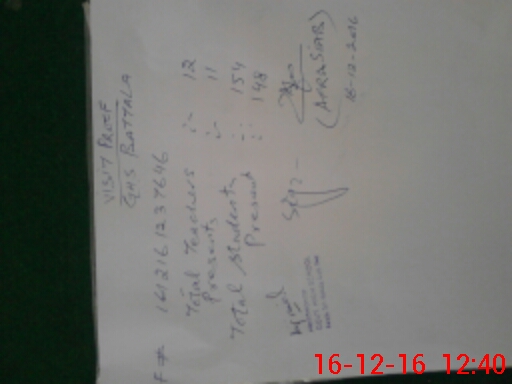 VISIT PROOF
GHS BATTALA
F # 1612161237646
Total Teachers :- 12
Presents :- 11
Total Students :- 154
Present :- 148
(AFRASIAB)
16-12-2016
16-12-16 12:40